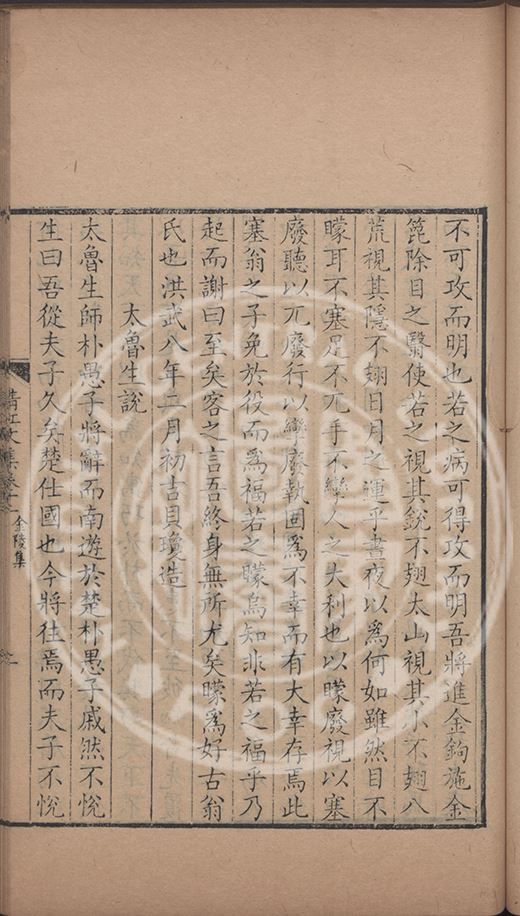 不可攻而明也若之病可得攻而明吾將進金鉤施金
篦除目之翳使若之視其銳不翅太山視其小不翅八
荒視其隱不翅日月之運乎晝夜以爲何如雖然目不
矇耳不塞足不兀手不攣人之大利也以矇廢視以塞
廢聽以兀廢行以攣廢執固爲不幸而有大幸存焉此
塞翁之子免於役而爲福若之矇烏知非若之福乎乃
起而謝曰至矣客之言吾終身無所尤矣矇爲好古翁
氏也洪武八年二月初吉貝瓊造
太魯生說
太魯生師朴愚子將辭而南遊於楚朴愚子戚然不悅
生曰吾從夫子久矣楚仕國也今將往焉而夫子不悅
清江文集卷十一
金陵集